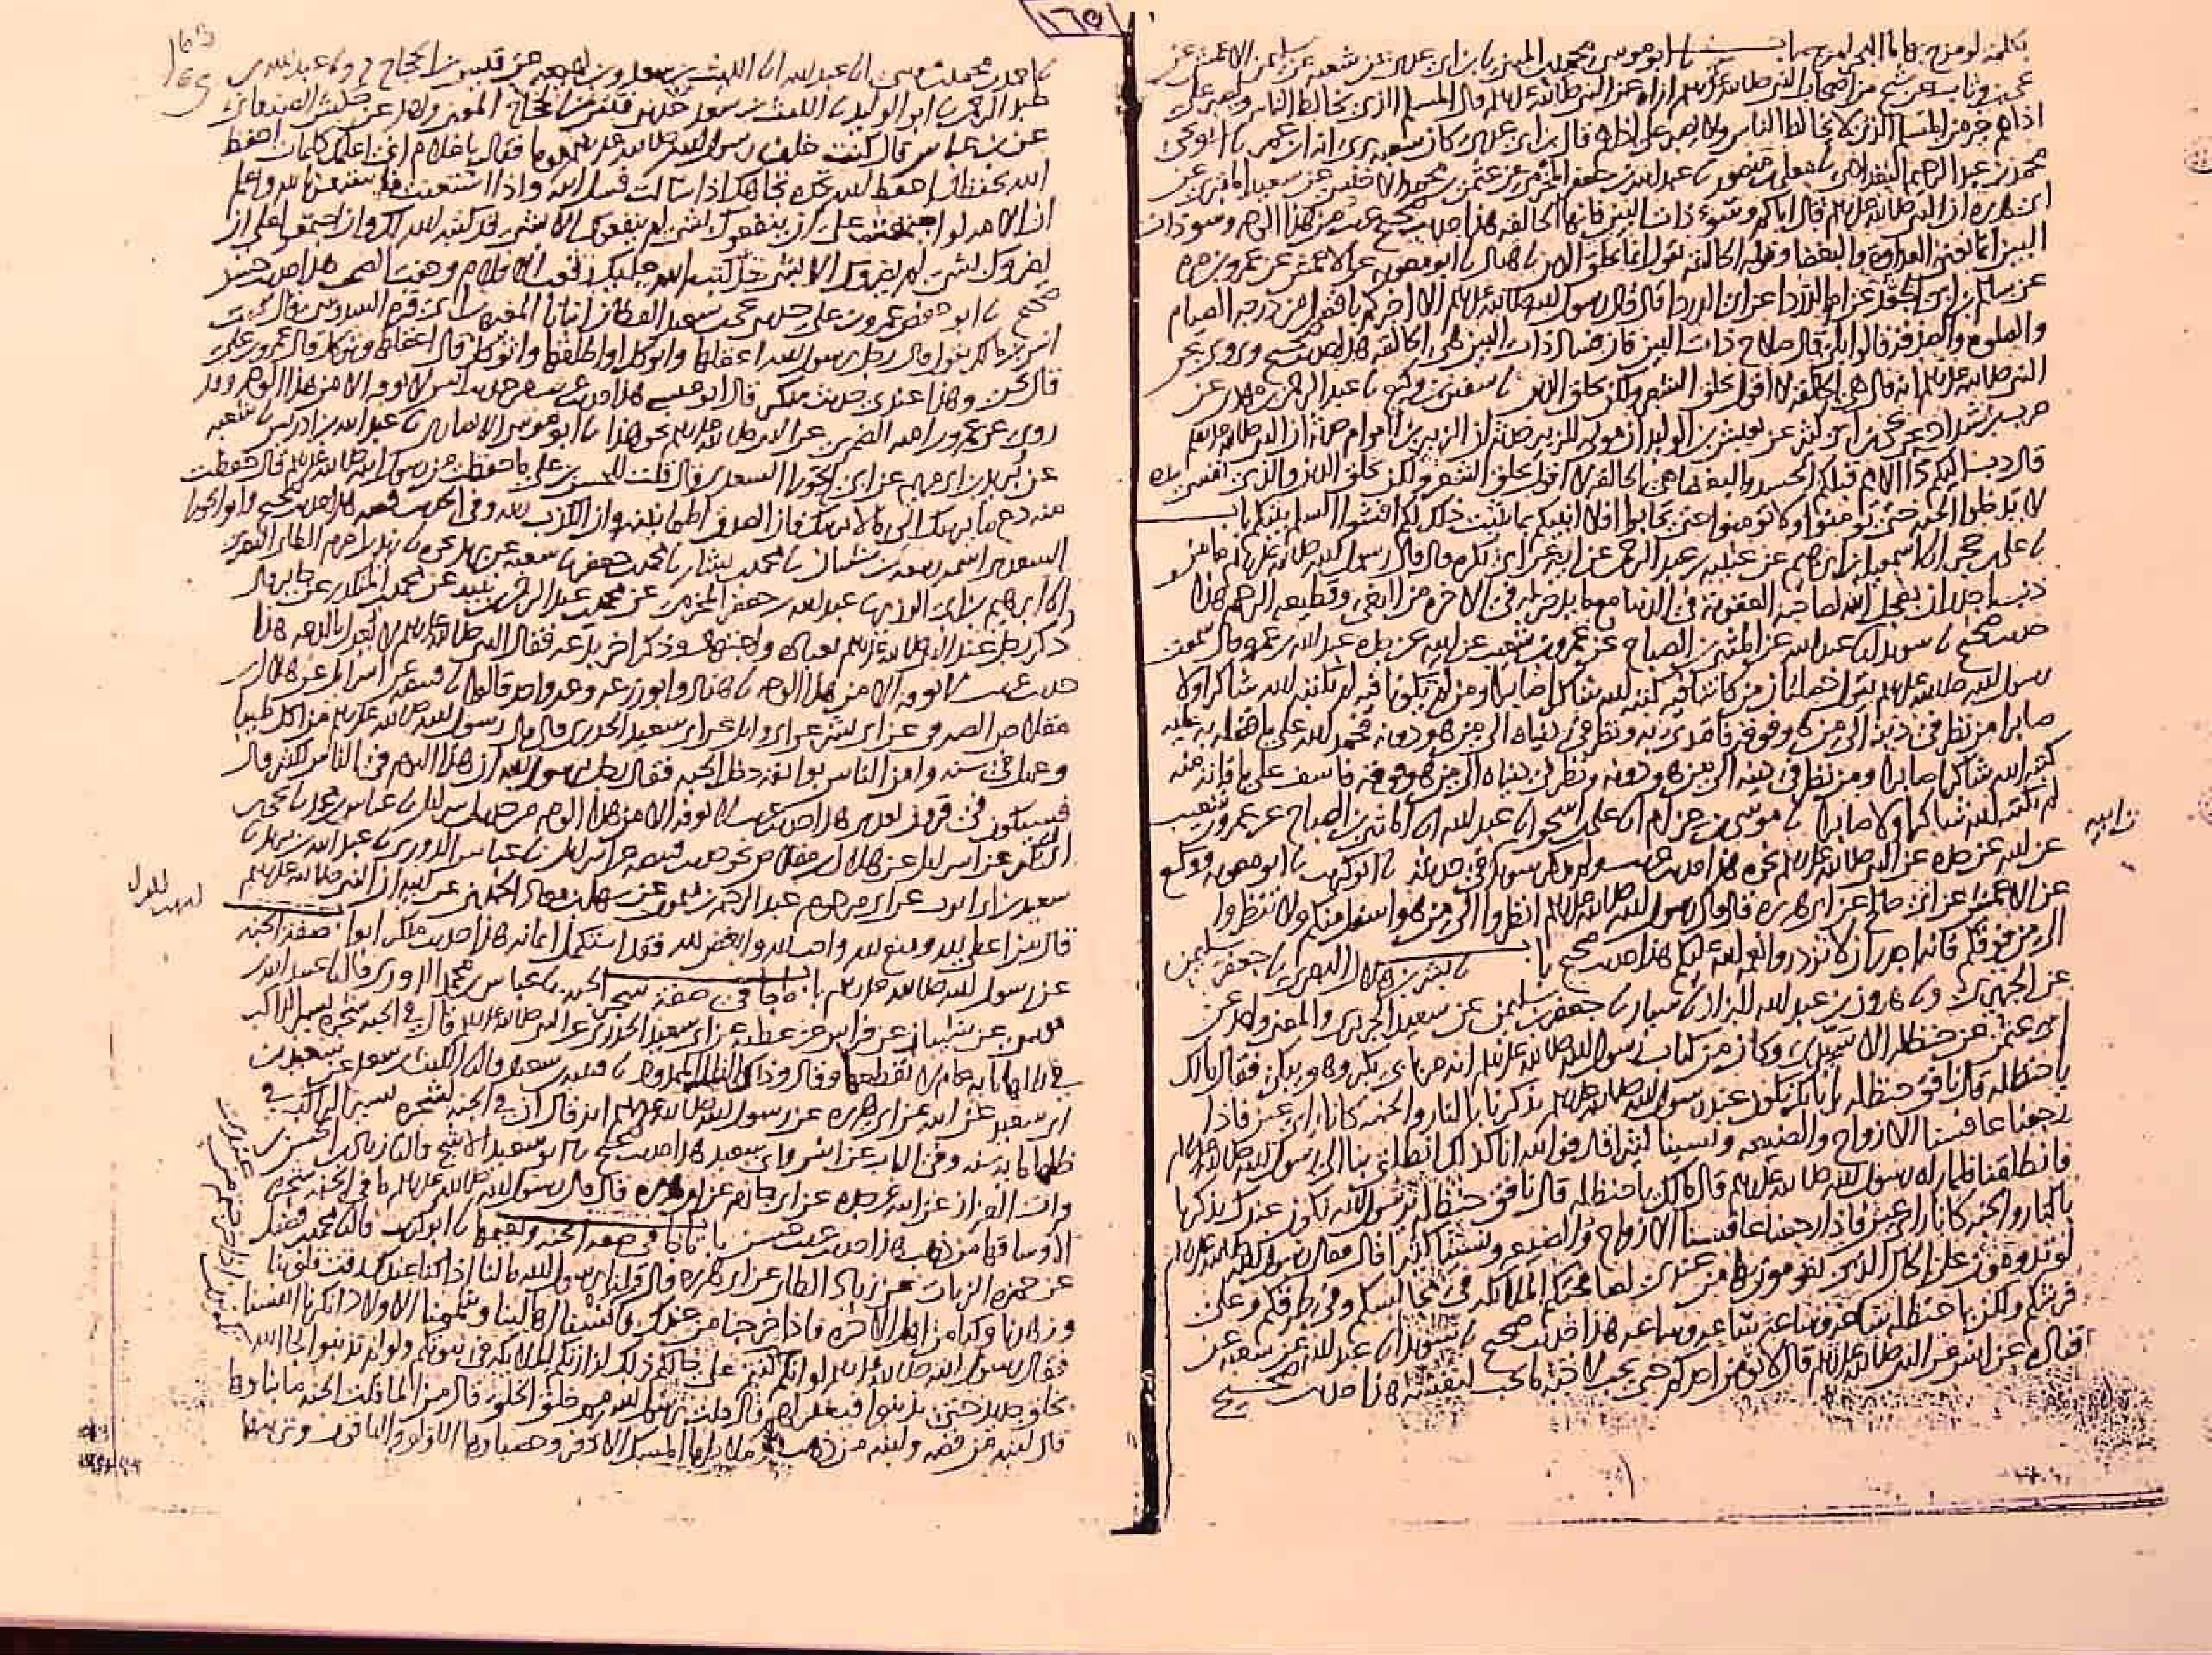 ١٦٥
بكلمة لو مزج بها ماء البحر لمزج باب ابو موسى محمد بن المثنى بن ابي عدي عن شعبة عن سليمن الاعمش عن
اصحاب النبي صلى الله عليه وسلم اراه عن النبي صلى الله عليه وسلم قال المسلم اذا كان يخالط الناس ويصبر على
اذاهم خير من المسلم الذي لا يخالط الناس ولا يصبر على اذاهم قال ابن ابي عدي كان شعبة يرى انه ابن عمر
محمد بن عبد الرحيم البغدادي معلى بن منصور عبد الله بن جعفر المخرمي عن عثمن بن محمد الاخنسي عن سعيد المقبري عن
ابي هريرة ان النبي صلى الله عليه وسلم قال اياكم وسوء ذات البين فانها الحالقة هذا حديث صحيح غريب من هذا الوجه وسوء ذات
البين انما يعني العداوة والبغضا وقوله الحالقة يقول انها تحلق الدين هناد ابو معوية عن الاعمش عن عمرو بن مرة
عن سالم بن ابي الجعد عن ام الدردا عن ابي الدردا قال قال رسول الله صلى الله عليه وسلم الا اخبركم بافضل من درجة الصيام
والصلوة والصدقة قالوا بلى قال صلاح ذات البين فان فساد ذات البين هي الحالقة هذا حديث صحيح ويروى عن
النبي صلى الله عليه وسلم انه قال هي الحالقة لا اقول تحلق الشعر ولكن تحلق الدين سفين بن وكيع عبد الرحمن بن مهدي عن
حرب بن شداد عن يحيى بن ابي كثير عن يعيش بن الوليد ان مولى للزبير حدثه ان الزبير بن العوام حدثه ان النبي صلى الله عليه وسلم
قال دب اليكم داء الامم قبلكم الحسد والبغضا هي الحالقة لا اقول تحلق الشعر ولكن تحلق الدين والذي نفسي بيده
لا تدخلوا الجنة حتى تومنوا ولا تومنوا حتى تحابوا افلا انبيكم بما يثبت ذلك لكم افشوا السلم بينكم باب
علي بن حجر اسمعيل بن ابرهيم عن عيينة بن عبد الرحمن عن ابيه عن ابي بكرة قال قال رسول الله صلى الله عليه وسلم ما من
ذنب اجدر ان يعجل الله لصاحبه العقوبة في الدنيا مع ما يدخر له في الاخرة من البغي وقطيعة الرحم هذا
حديث صحيح سويد عبد الله عن المثنى بن الصباح عن عمرو بن شعيب عن جده عبد الله بن عمرو قال سمعت
رسول الله صلى الله عليه وسلم يقول خصلتان من كانتا فيه كتبه الله شاكرا صابرا ومن لم تكونا فيه لم يكتبه الله شاكرا ولا
صابرا من نظر في دينه الى من هو فوقه فاقتدى به ونظر في دنياه الى من هو دونه فحمد الله على ما فضله به عليه
كتبه الله شاكرا صابرا ومن نظر في دينه الى من هو دونه ونظر في دنياه الى من هو فوقه فاسف على ما فاته منه
لم يكتبه الله شاكرا ولا صابرا موسى بن حزام علي بن اسحق عبد الله المثنى بن الصباح عن عمرو بن شعيب
عن ابيه عن جده عن النبي صلى الله عليه وسلم نحوه هذا حديث غريب ولم يذكر سويد في حديثه ابو كريب ابو معوية ووكيع
عن الاعمش عن ابي صالح عن ابي هريرة قال قال رسول الله صلى الله عليه وسلم انظروا الى من هو اسفل منكم ولا تنظروا
الى من فوقكم فانه اجدر ان لا تزدروا نعمة الله عليكم هذا حديث صحيح باب بشر بن هلال البصري جعفر بن سليمن
عن الجريري هرون بن عبد الله البزاز سيار جعفر بن سليمن عن سعيد الجريري والمعنى واحد عن
ابي عثمن عن حنظلة الاسيدي وكان من كتاب رسول الله صلى الله عليه وسلم انه مر بابي بكر وهو يبكي فقال مالك
يا حنظلة قال نافق حنظلة يا ابا بكر نكون عند رسول الله صلى الله عليه وسلم يذكرنا بالنار والجنة كانا راي عين فاذا
رجعنا عافسنا الازواج والضيعة ونسينا كثيرا قال فوالله انا كذلك انطلق بنا الى رسول الله صلى الله عليه وسلم
فانطلقنا فلما راه رسول الله صلى الله عليه وسلم قال مالك يا حنظلة قال نافق حنظلة يا رسول الله نكون عندك تذكرنا
بالنار والجنة كانا راي عين فاذا رجعنا عافسنا الازواج والضيعة ونسينا كثيرا قال فقال رسول الله صلى الله عليه وسلم
لو تدومون على الحال الذي تقومون بها من عندي لصافحتكم الملائكة في مجالسكم وفي طرقكم وعلى
فرشكم ولكن يا حنظلة ساعة وساعة وساعة هذا حديث صحيح سويد عبد الله عن شعبة عن
قتادة عن انس عن النبي صلى الله عليه وسلم قال لا يومن احدكم حتى يحب لاخيه ما يحب لنفسه هذا حديث صحيح
165
احمد بن محمد بن موسى عبد الله الليث بن سعد وابن لهيعة عن قيس بن الحجاج ح عبد الله بن
عبد الرحمن ابو الوليد الليث بن سعد قيس بن الحجاج المعنى واحد عن حنش الصنعاني
عن ابن عباس قال كنت خلف رسول الله صلى الله عليه وسلم يوما فقال يا غلام اني اعلمك كلمات احفظ
الله يحفظك احفظ الله تجده تجاهك اذا سالت فسل الله واذا استعنت فاستعن بالله واعلم
ان الامة لو اجتمعت على ان ينفعوك بشي لم ينفعوك الا بشي قد كتبه الله لك وان اجتمعوا على ان
يضروك بشي لم يضروك الا بشي قد كتبه الله عليك رفعت الاقلام وجفت الصحف هذا حديث حسن
صحيح ابو حفص عمرو بن علي يحيى بن سعيد القطان المغيرة بن ابي قرة السدوسي قال سمعت
انس بن مالك يقول قال رجل يرسول الله اعقلها واتوكل او اطلقها واتوكل قال اعقلها وتوكل قال عمرو بن علي
قال يحيى وهذا عندي حديث منكر قال ابو عيسى هذا حديث غريب من حديث انس لا نعرفه الا من هذا الوجه وقد
روي عن عمرو بن امية الضمري عن النبي صلى الله عليه وسلم نحو هذا ابو موسى الانصاري عبد الله بن ادريس شعبة
عن بريد بن ابي مريم عن ابي الحورا السعدي قال قلت للحسن بن علي ما حفظت من رسول الله صلى الله عليه وسلم قال حفظت
منه دع ما يريبك الى ما لا يريبك فان الصدق طمانينة وان الكذب ريبة وفي الحديث قصة هذا حديث صحيح وابو الحورا
السعدي اسمه ربيعة بن شيبان محمد بن بشار محمد بن جعفر شعبة عن بريد نحوه زيد بن اخزم الطائي البصري
ابرهيم بن ابي الوزير عبد الله بن جعفر المخرمي عن محمد بن عبد الرحمن بن نبيه عن محمد بن المنكدر عن جابر قال
ذكر رجل عند النبي صلى الله عليه وسلم بعبادة واجتهاد وذكر اخر برعة فقال النبي صلى الله عليه وسلم لا يعدل بالرعة هذا
حديث غريب لا نعرفه الا من هذا الوجه هناد وابو زرعة وغير واحد قالوا قبيصة عن اسرائيل عن هلال بن
مقلاص الصيرفي عن ابي بشر عن ابي وائل عن ابي سعيد الخدري قال قال رسول الله صلى الله عليه وسلم من اكل طيبا
وعمل في سنة وامن الناس بوائقه دخل الجنة فقال رجل يرسول الله ان هذا اليوم في الناس لكثير قال
فسيكون في قرون بعدي هذا حديث غريب لا نعرفه الا من هذا الوجه من حديث اسرائيل عباس بن محمد يحيى بن
ابي بكير عن اسرائيل عن هلال بن مقلاص نحو حديث قبيصة عن اسرائيل عباس الدوري عبد الله بن يزيد
سعيد بن ابي ايوب عن ابي مرحوم عبد الرحيم بن ميمون عن سهل بن معاذ الجهني عن ابيه ان النبي صلى الله عليه وسلم
قال من اعطى لله ومنع لله واحب لله وابغض لله فقد استكمل ايمانه هذا حديث منكر ابواب صفة الجنة
عن رسول الله صلى الله عليه وسلم باب ما جا في صفة شجر الجنة عباس بن محمد الدوري عبيد الله بن
موسى عن شيبان عن فراس عن عطية عن ابي سعيد الخدري عن النبي صلى الله عليه وسلم قال في الجنة شجرة يسير الراكب
في ظلها ماية عام لا يقطعها وقال وذلك الظل الممدود قتيبة بن سعيد الليث بن سعد عن سعيد بن
ابي سعيد عن ابيه عن ابي هريرة عن رسول الله صلى الله عليه وسلم انه قال ان في الجنة لشجرة يسير الراكب في
ظلها ماية سنة وفي الباب عن انس وابي سعيد هذا حديث صحيح ابو سعيد الاشج زياد بن الحسن بن
فرات القزاز عن ابيه عن جده عن ابي حازم عن ابي هريرة قال قال رسول الله صلى الله عليه وسلم ما في الجنة شجرة
الا وساقها من ذهب هذا حديث غريب حسن باب ما جا في صفة الجنة ونعيمها ابو كريب محمد بن فضيل
عن حمزة الزيات عن زياد الطائي عن ابي هريرة قال قلنا يرسول الله ما لنا اذا كنا عندك رقت قلوبنا
وزهدنا وكنا من اهل الاخرة فاذا خرجنا من عندك فانسنا اهالينا وشممنا الاولاد انكرنا انفسنا
فقال رسول الله صلى الله عليه وسلم لو انكم كنتم على حالكم ذلك لزارتكم الملائكة في بيوتكم ولو لم تذنبوا لجا الله
بخلق جديد حتى يذنبوا فيغفر لهم قال قلت يرسول الله مم خلق الخلق قال من الما قلت الجنة ما بناوها
قال لبنة من فضة ولبنة من ذهب وملاطها المسك الاذفر وحصباوها اللولو والياقوت وتربتها